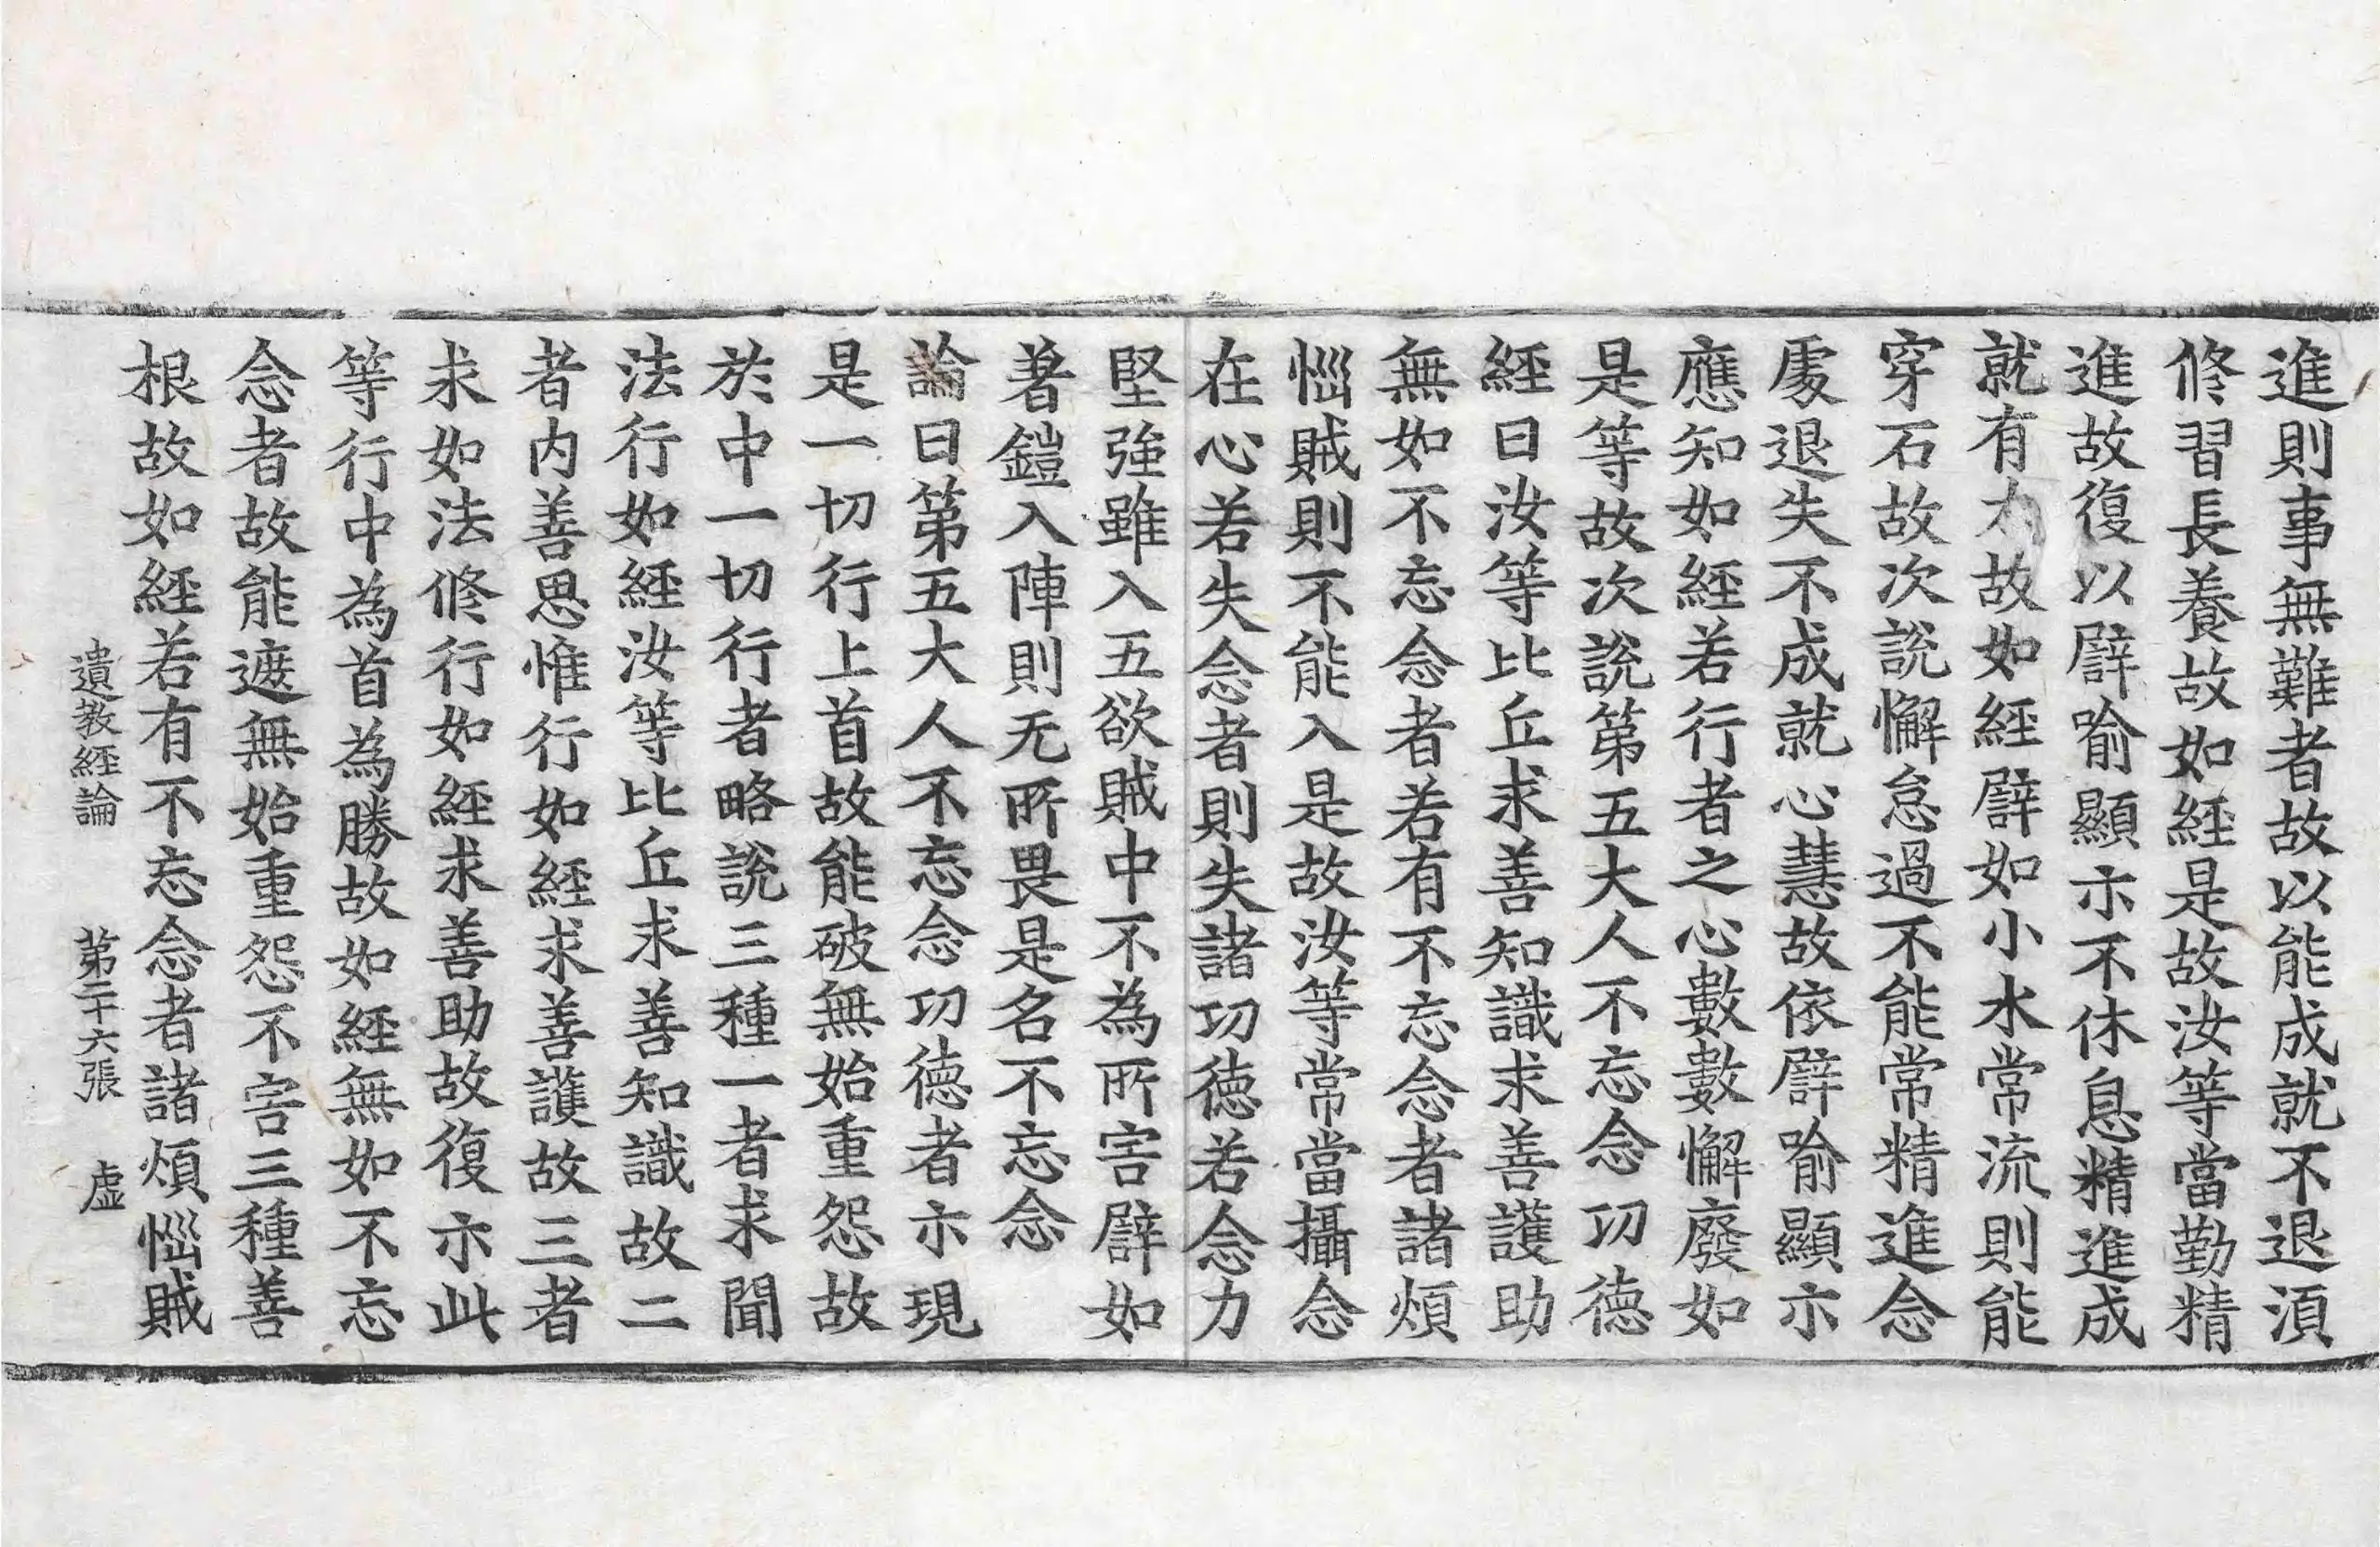 進則事無難者故以能成就不退湏
修習長養故如經是故汝等當勤精
進故復以譬喻顯示不休息精進成
就有力故如經譬如小水常流則能
穿石故次說懈怠過不能常精進念
處退失不成就心慧故依譬喻顯示
應知如經若行者之心數數懈廢如
是等故次說第五大人不忘念㓛德
經曰汝等比丘求善知識求善護助
無如不忘念者若有不忘念者諸煩
惱賊則不能入是故汝等常當攝念
在心若失念者則失諸㓛德若念力
堅強雖入五欲賊中不為所害譬如
著鎧入陣則无所畏是名不忘念
論曰第五大人不忘念㓛德者示現
是一切行上首故能破無始重怨故
於中一切行者略說三種一者求聞
法行如經汝等比丘求善知識故二
者內善思惟行如經求善護故三者
求如法修行如經求善助故復示此
等行中為首為勝故如經無如不忘
念者故能遮無始重怨不害三種善
根故如經若有不忘念者諸煩惱賊
遺教經論 第二十六張 虛